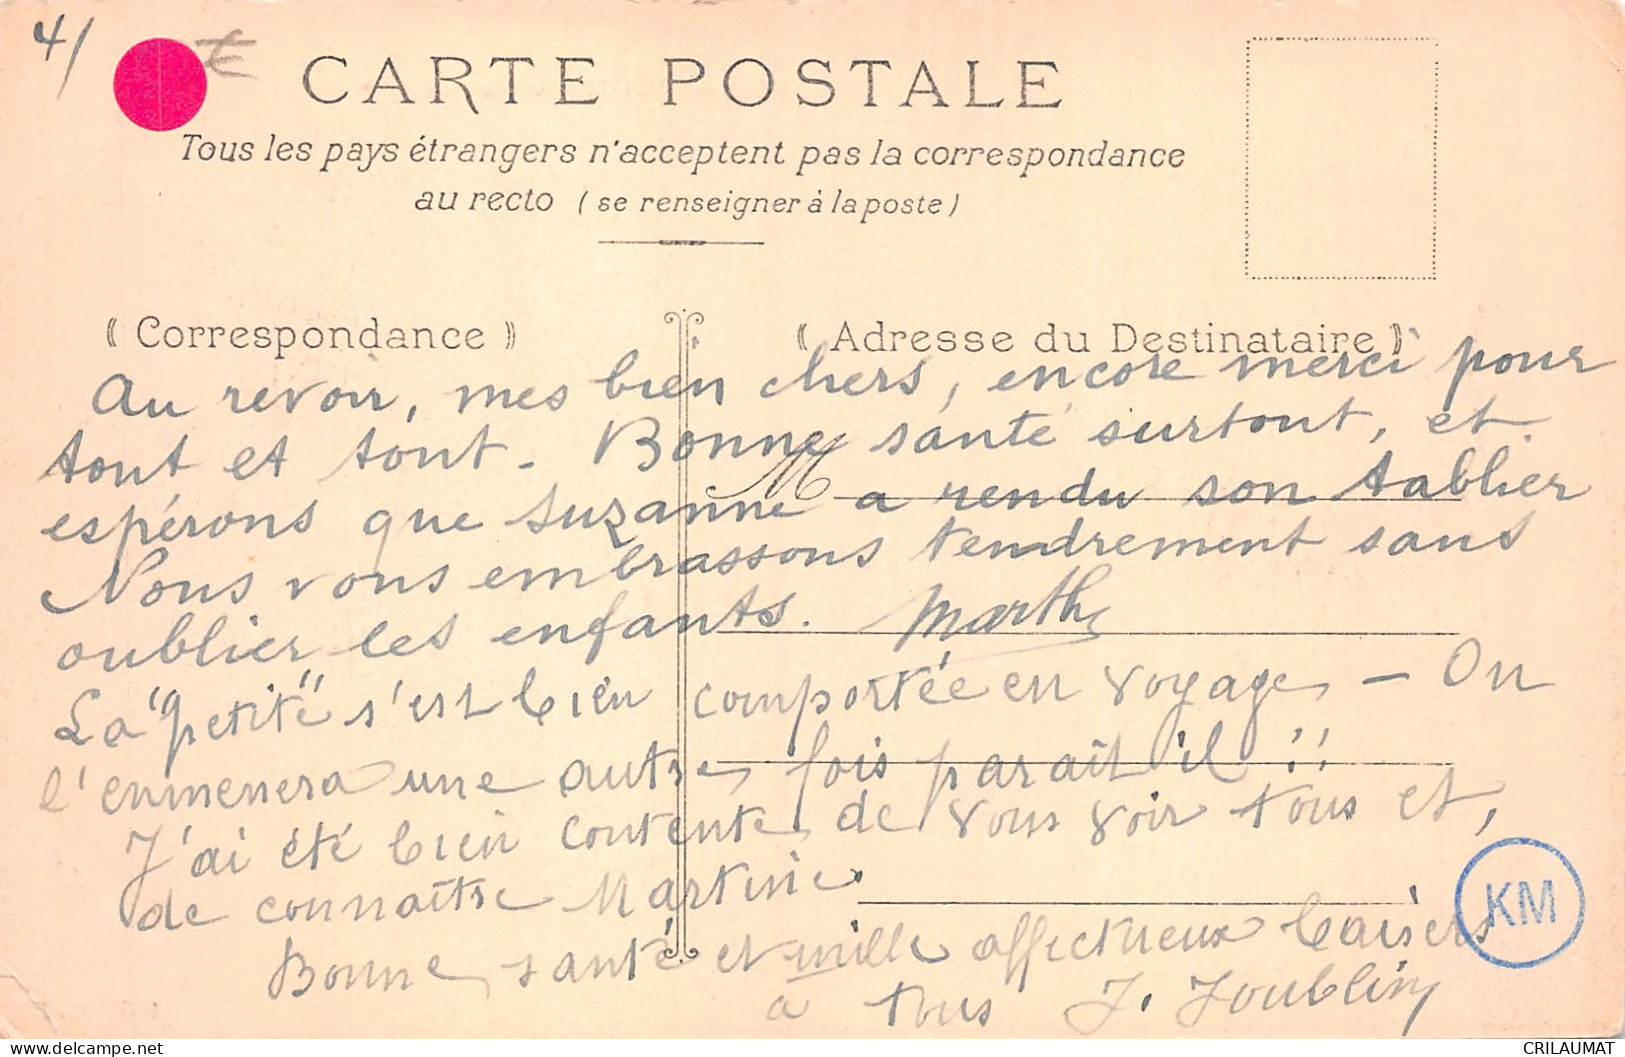 4/
€
CARTE POSTALE
Tous les pays étrangers n'acceptent pas la correspondance
au recto (se renseigner à la poste)
⟪ Correspondance ⟫
⟪ Adresse du Destinataire ⟫
Au revoir, mes bien chers, encore merci pour
tout et tout. Bonne santé surtout, et
espérons que Suzanne a rendu son tablier
M
Nous vous embrassons tendrement sans
oublier les enfants. Marthe
La "petite" s'est bien comportée en voyage, - On
l'emmenera une autre fois parait il !!
J'ai été bien contente de vous voir tous et,
de connaître Martine
Bonne santé et mille affectueux baisers
à tous J. Joublin
KM
delcampe.net
CRILAUMAT